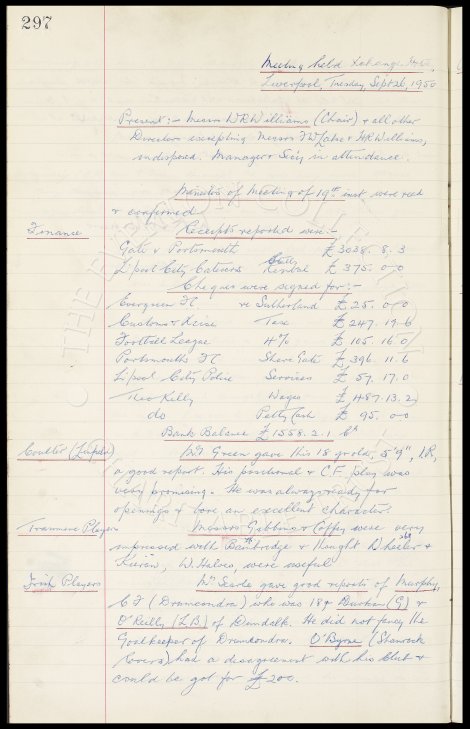 297
Meeting held Exchange Hotel,
Liverpool, Tuesday Sept 26, 1950
Present:- Messrs W R Williams (Chair) & all other
Directors excepting Messrs & H R Williams,
indisposed. Manager & Sec'y in attendance.
Minutes of Meeting of 19th inst. were read
& confirmed
Finance Receipts reported were:-
Gate v Portsmouth £3038. 8. 3
L'pool City Caterers Rental £375. 0-0
Cheques were signed for:-
Evergreen FC re Sutherland £25. 0-0
Customs & Excise Tax £247. 19. 6
Football League 4% £105. 16. 0
Portsmouth FC Share Gate £396. 11. 6
L'pool City Police Services £57. 17. 0
Theo Kelly Wages £1487. 13. 2
do Petty Cash £95. 0-0
Bank Balance £1558. 2. 1
Coulter Mr Green gave this 18 yr old, 5'9", I.R,
a good report. His positional & C.F. play was
very promising. He was always ready for
openings & bore an excellent character.
Tranmere Players Messrs Gibbins & Coffey were very
impressed with Bainbridge & thought Wheeler &
Kieran, W. Haloes, were useful
Irish Players Mr Searle gave good reports of Murphy,
C F (Drumcondra) who was 18 & (G) &
O'Reilly (L.B) of Dundalk. He did not fancy the
Goalkeeper of Drumcondra. O'Byrne (Shamrock
Rovers) had a disagreement with his Club &
could be got for £200.